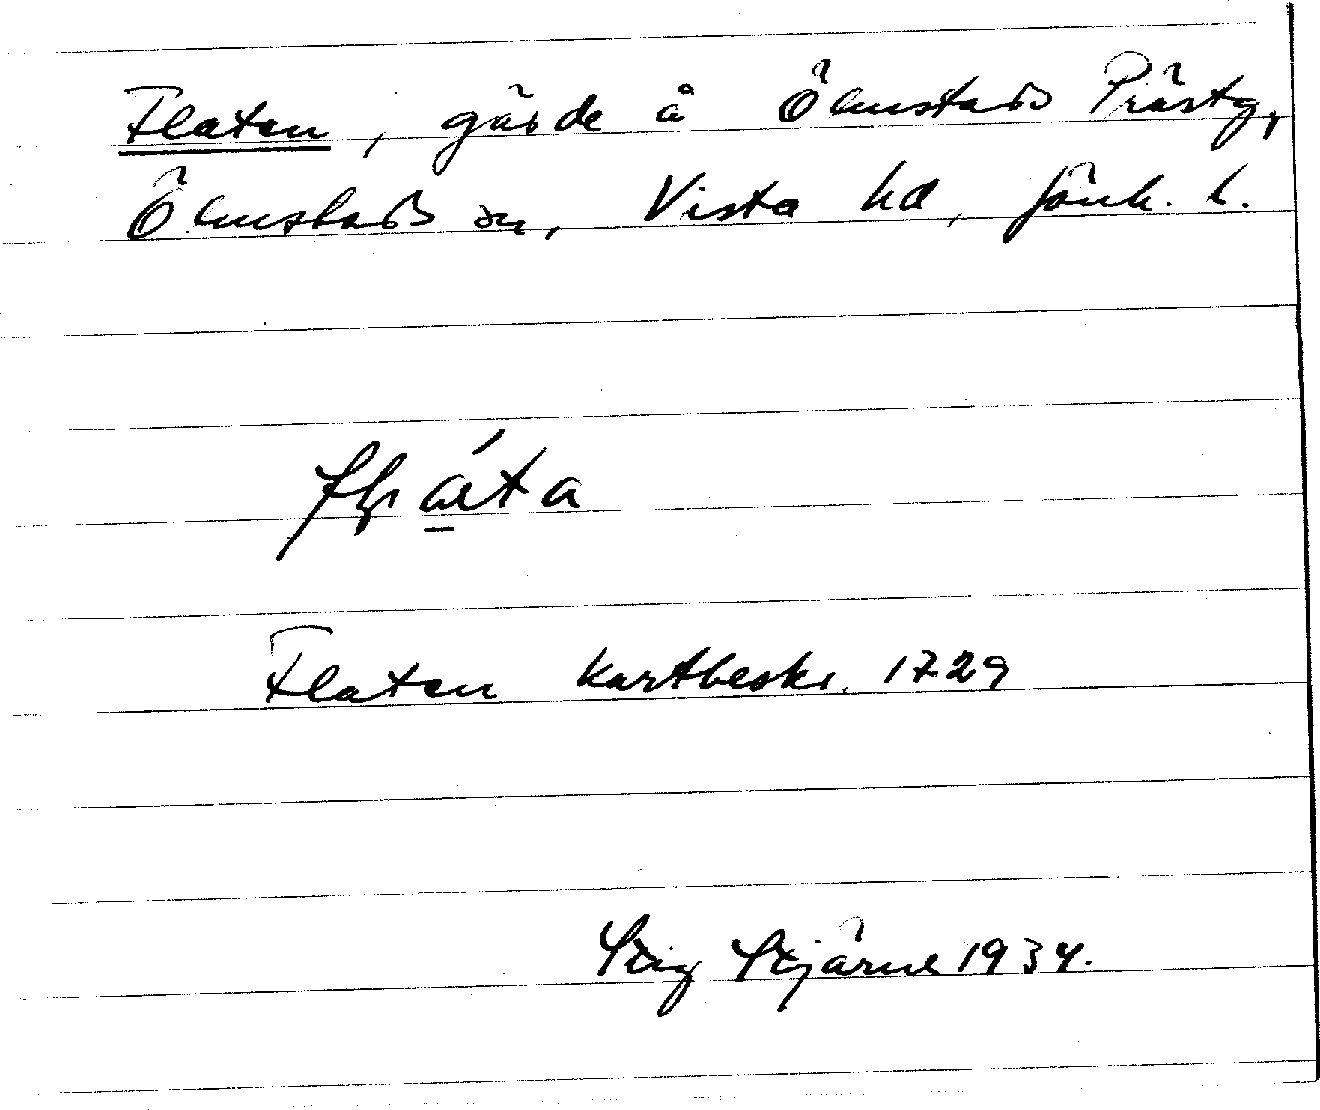 Flaten, gärde å Ölmstads Prästg,
Ölmstads sn, Vista hd, Jönk. l.
Flaten kartbeskr. 1729
Stig Stjärne 1934.